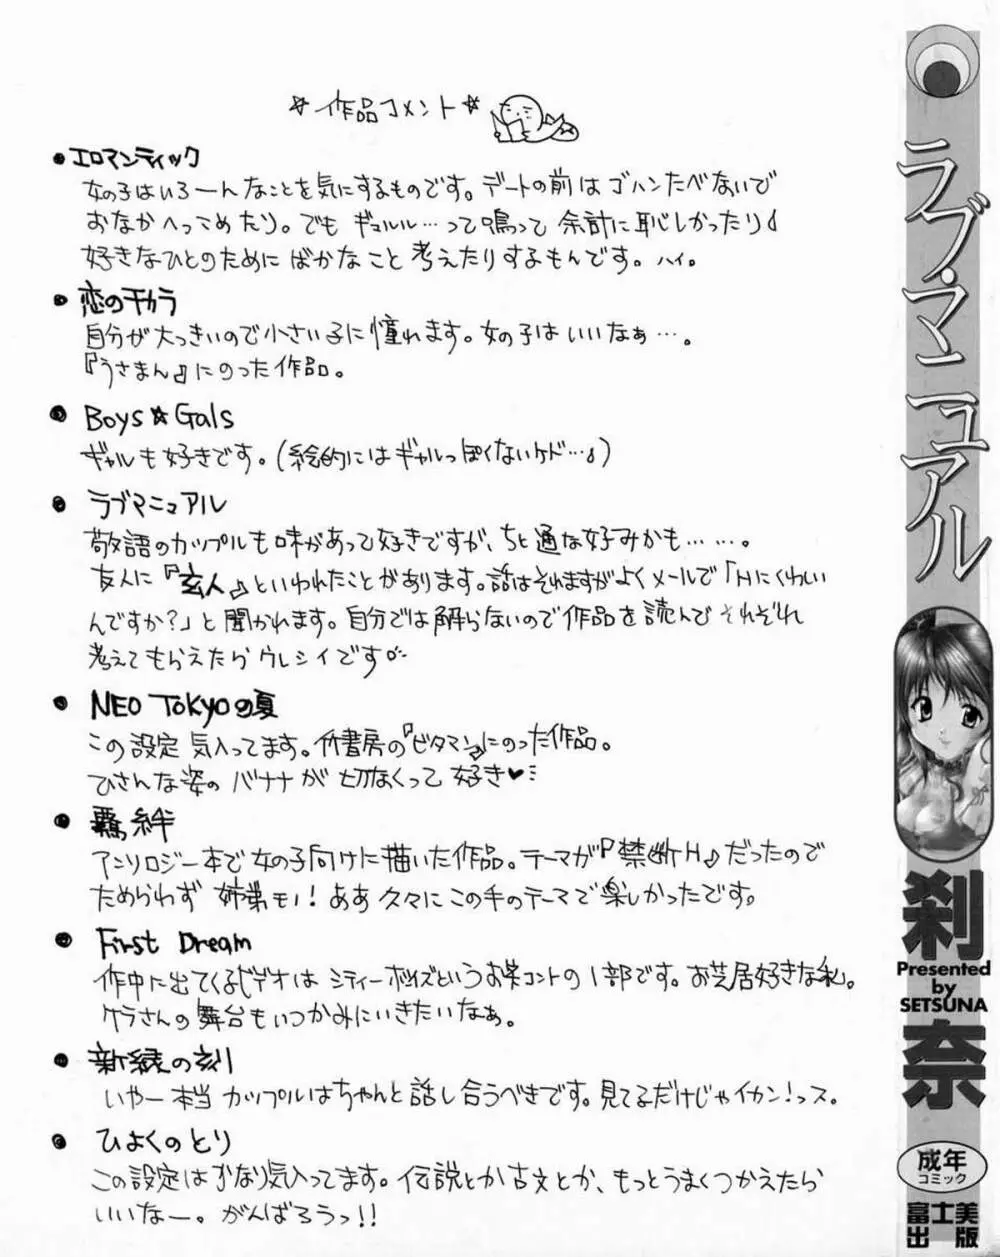 ☆作品コメント☆
●エロマンティック
女の子はいろーんなことを気にするものです。デートの前はゴハンたべないで
おなかへっこめたり。でも ギュルル…って鳴って 余計に恥しかったり♪
好きなひとのために ばかなこと 考えたりするもんです。ハイ。
●恋のチカラ
自分が大っきいので小さい子に憧れます。女の子はいいなぁ…。
『うさまん』にのった作品。
●Boys☆Gals
ギャルも好きです。(絵的にはギャルっぽくないケド…♪)
●ラブマニュアル
敬語のカップルも味があって好きですが、ちと通な好みかも……。
友人に『玄人』といわれたことがあります。話はそれますがよくメールで「Hにくわしい
んですか?」と聞かれます。自分では解らないので作品を読んでそれぞれ
考えてもらえたらウレシイです
●NEO TOKYOの夏
この設定 気入ってます。竹書房の『ビタマン』にのった作品。
ひさんな姿の バナナが 切なくって 好き♥
●羈絆
アンソロジー本で女の子向けに描いた作品。テーマが『禁断H』だったので
ためらわず 姉弟モノ!ああ久々にこの手のテーマで楽しかったです。
●First Dream
作中に出てくるビデオは シティーボーイズというお笑コントの1部です。お芝居好きな私。
ケラさんの舞台もいつかみにいきたいなぁ。
●新緑の刻
いやー本当 カップルはちゃんと話し合うべきです。見てるだけじゃイカン!っス。
●ひよくのとり
この設定はかなり気入ってます。伝説とか古文とか、もっとうまくつかえたら
いいなー。がんばろうっ!!
ラブ・マニュアル
刹奈
Presented
by
SETSUNA
成年
コミック
富士美
出版